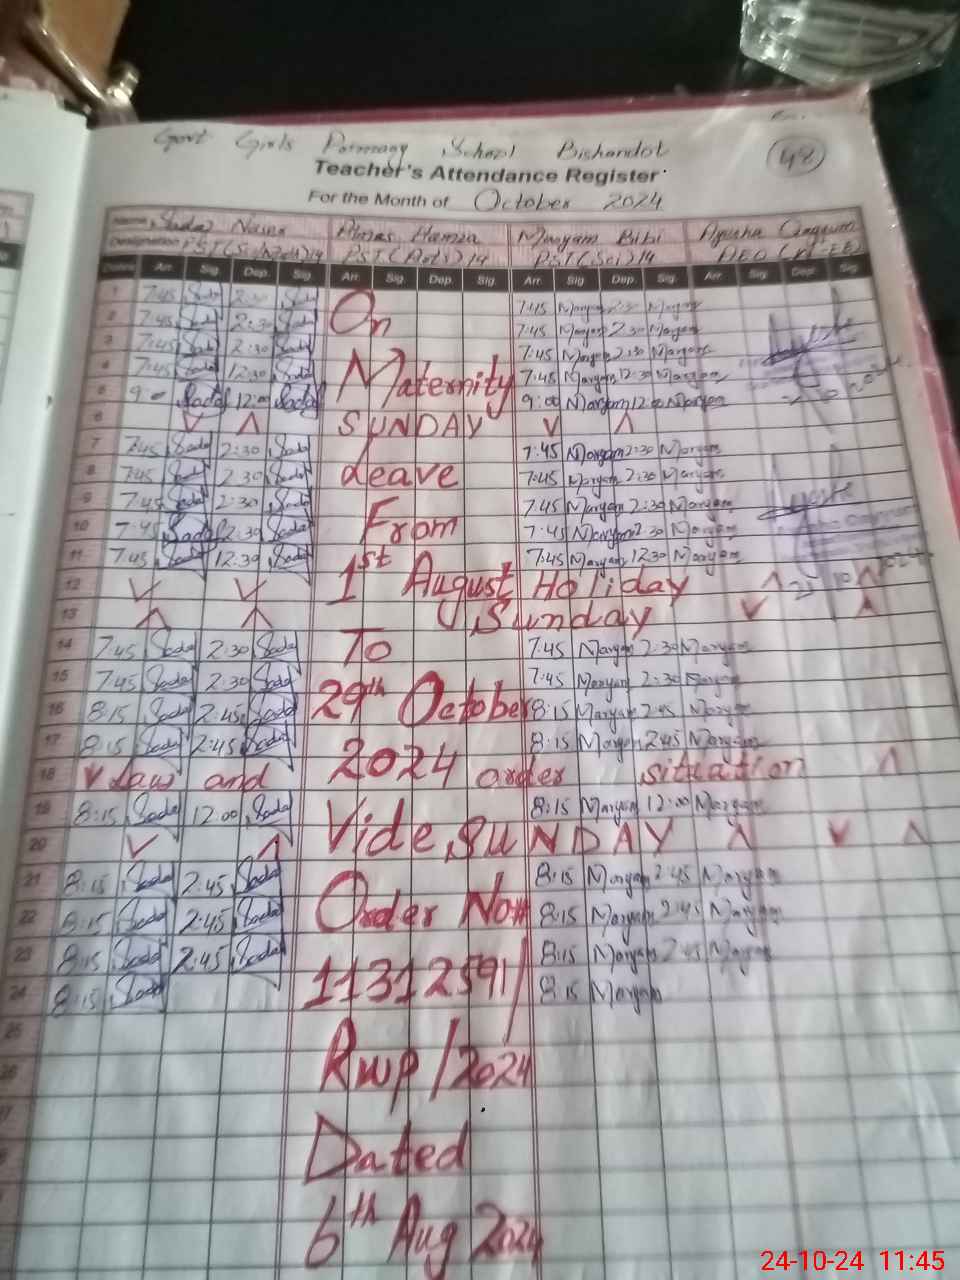 Govt Girls Primary School Bishandot
48
Teacher's Attendance Register
For the Month of October 2024
Name Sadaf Almas Hamza Maryam Bibi Ayesha Qayyum
Designation PST(Sci/Math)14 PST(Arts)14 PST(Sci)14 AEO
Dates Arr. Sig. Dep. Sig. Arr. Sig. Dep. Sig. Arr. Sig. Dep. Sig. Arr. Sig. Dep. Sig.
1 7:45 Sadaf 2:30 Sadaf On 7:45 Maryam 2:30 Maryam
2 7:45 Sadaf 2:30 Sadaf 7:45 Maryam 2:30 Maryam
3 7:45 Sadaf 2:30 Sadaf 7:45 Maryam 2:30 Maryam
4 7:45 Sadaf 12:30 Sadaf Maternity 7:45 Maryam 12:30 Maryam
5 9:00 Sadaf 12:00 Sadaf 9:00 Maryam 12:00 Maryam
6 SUNDAY
7 7:45 Sadaf 2:30 Sadaf 7:45 Maryam 2:30 Maryam
8 7:45 Sadaf 2:30 Sadaf Leave 7:45 Maryam 2:30 Maryam
9 7:45 Sadaf 2:30 Sadaf 7:45 Maryam 2:30 Maryam
10 7:45 Sadaf 2:30 Sadaf From 7:45 Maryam 2:30 Maryam
11 7:45 Sadaf 12:30 Sadaf 7:45 Maryam 12:30 Maryam
12 1st August Holiday
13 Sunday
14 7:45 Sadaf 2:30 Sadaf To 7:45 Maryam 2:30 Maryam
15 7:45 Sadaf 2:30 Sadaf 7:45 Maryam 2:30 Maryam
16 8:15 Sadaf 2:45 Sadaf 29th October 8:15 Maryam 2:45 Maryam
17 8:15 Sadaf 2:45 Sadaf 8:15 Maryam 2:45 Maryam
18 Law and 2024 order sitiation
19 8:15 Sadaf 12:00 Sadaf 8:15 Maryam 12:00 Maryam
20 Vide SUNDAY
21 8:15 Sadaf 2:45 Sadaf 8:15 Maryam 2:45 Maryam
22 8:15 Sadaf 2:45 Sadaf Order No# 8:15 Maryam 2:45 Maryam
23 8:15 Sadaf 2:45 Sadaf 8:15 Maryam 2:45 Maryam
24 8:15 Sadaf 11312591/ 8:15 Maryam
25
26 Rwp/2024
Dated
6th Aug 2024
24-10-24 11:45